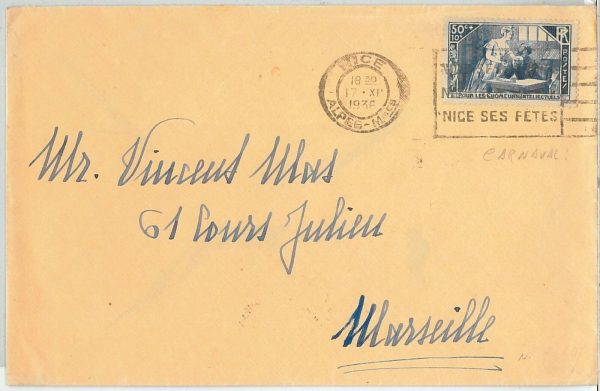 NICE
18 30
17 · XI
1936
ALPES-Mmes
50c+
10c
RF
POSTE
POUR LES CHOMEURS INTELLECTUELS
NICE SES FÊTES
CARNAVAL!
Mr. Vincent Mas
61 Cours Julien
Marseille